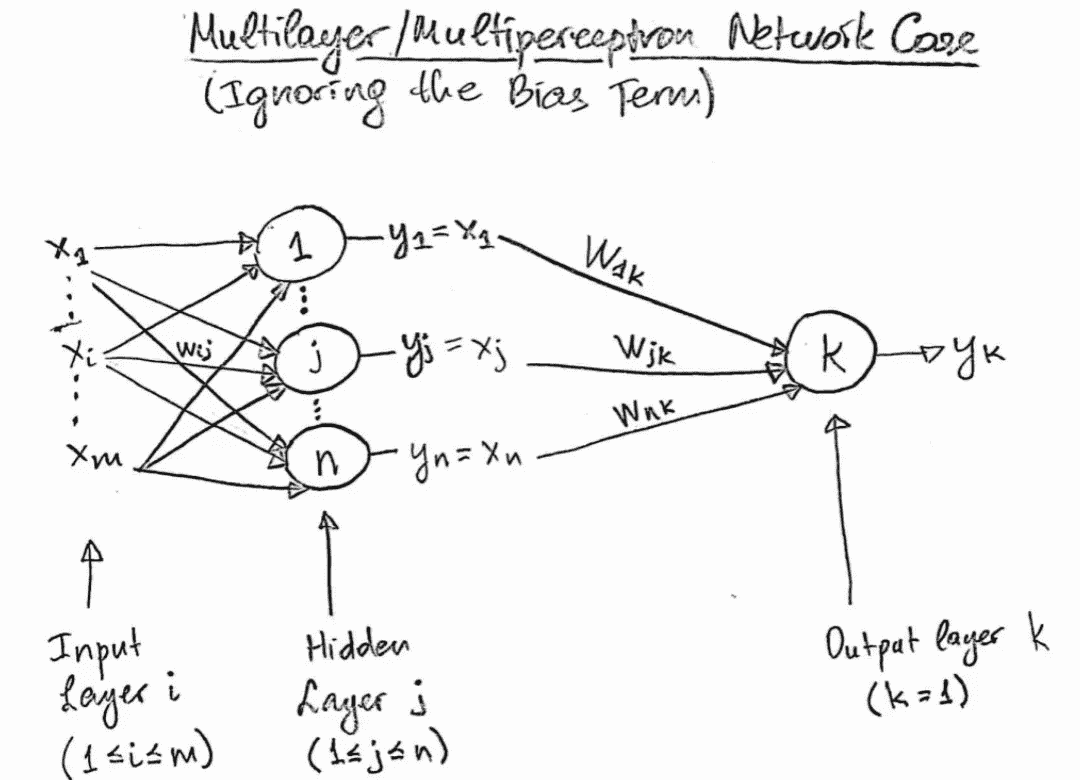 Multilayer/Multiperceptron Network Case
(Ignoring the Bias Term)
x1
xi
xm
wij
1
j
n
y1 = x1
yj = xj
yn = xn
W1k
Wjk
Wnk
k
yk
Input
Layer i
(1≤i≤m)
Hidden
Layer j
(1≤j≤n)
Output layer k
(k=1)